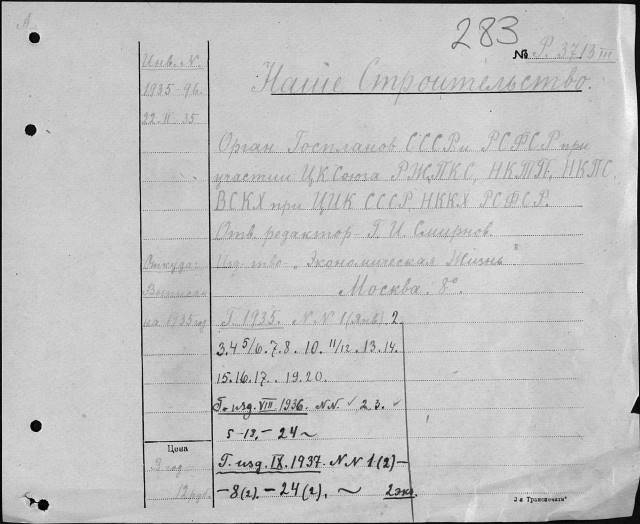 283
№ Р. 3713 III
Инв. N.
1935-96.
22.II 35
Наше Строительство.
Орган Госпланов СССР и РСФСР при
участии ЦК Союза РЖПКС, НКТП, НКПС,
ВСКХ при ЦИК СССР, НККХ РСФСР.
Отв. редактор - Г. И. Смирнов.
Изд-тво „Экономическая Жизнь"
Москва. 8°.
Откуда:
Выписан
на 1935 год
Г. 1935. N.N 1 (Янв). 2
3.4 5/6. 7. 8. 10. 11/12. 13. 14.
15. 16. 17. 19. 20.
Г. изд. VIII 1936. N.N. ✓ 2. 3. ✓
5-13. - 24 ~
Г. изд. IX. 1937. N N 1 (2) -
- 8 (2). - 24 (2). ~ 2 экз.
Цена
В год
12 руб.